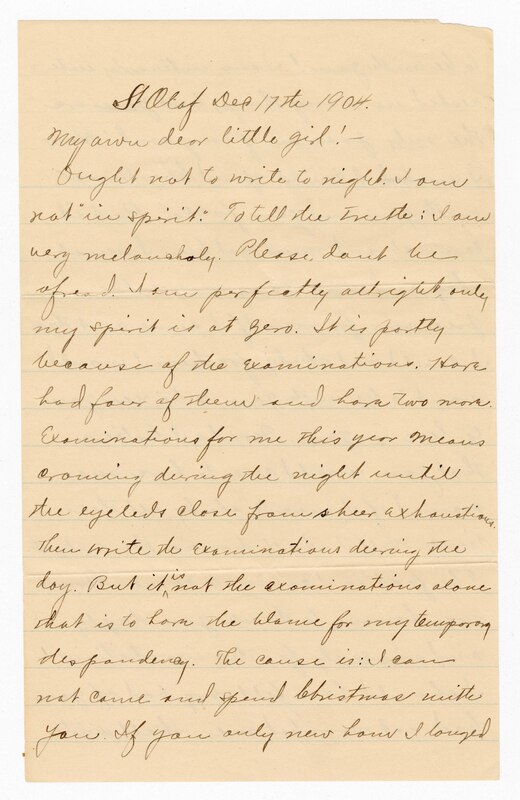 St Olaf Dec 17th 1904.
My own dear little girl! –
Ought not to write to night. I am
not "in spirit". To tell the truth: I am
very melancholy. Please, dont be
afraid. I am perfectly allright only
my spirit is at zero. It is partly
because of the examinations. Have
had four of them and have two more.
Examinations for me this year means
craming during the night until
the eyelids close from sheer exhaustion.
Then write the examinations during the
day. But it is not the examinations alone
that is to have the blame for my temporary
despondency. The cause is: I can
not come and spend Christmas with
you. If you only new how I longed